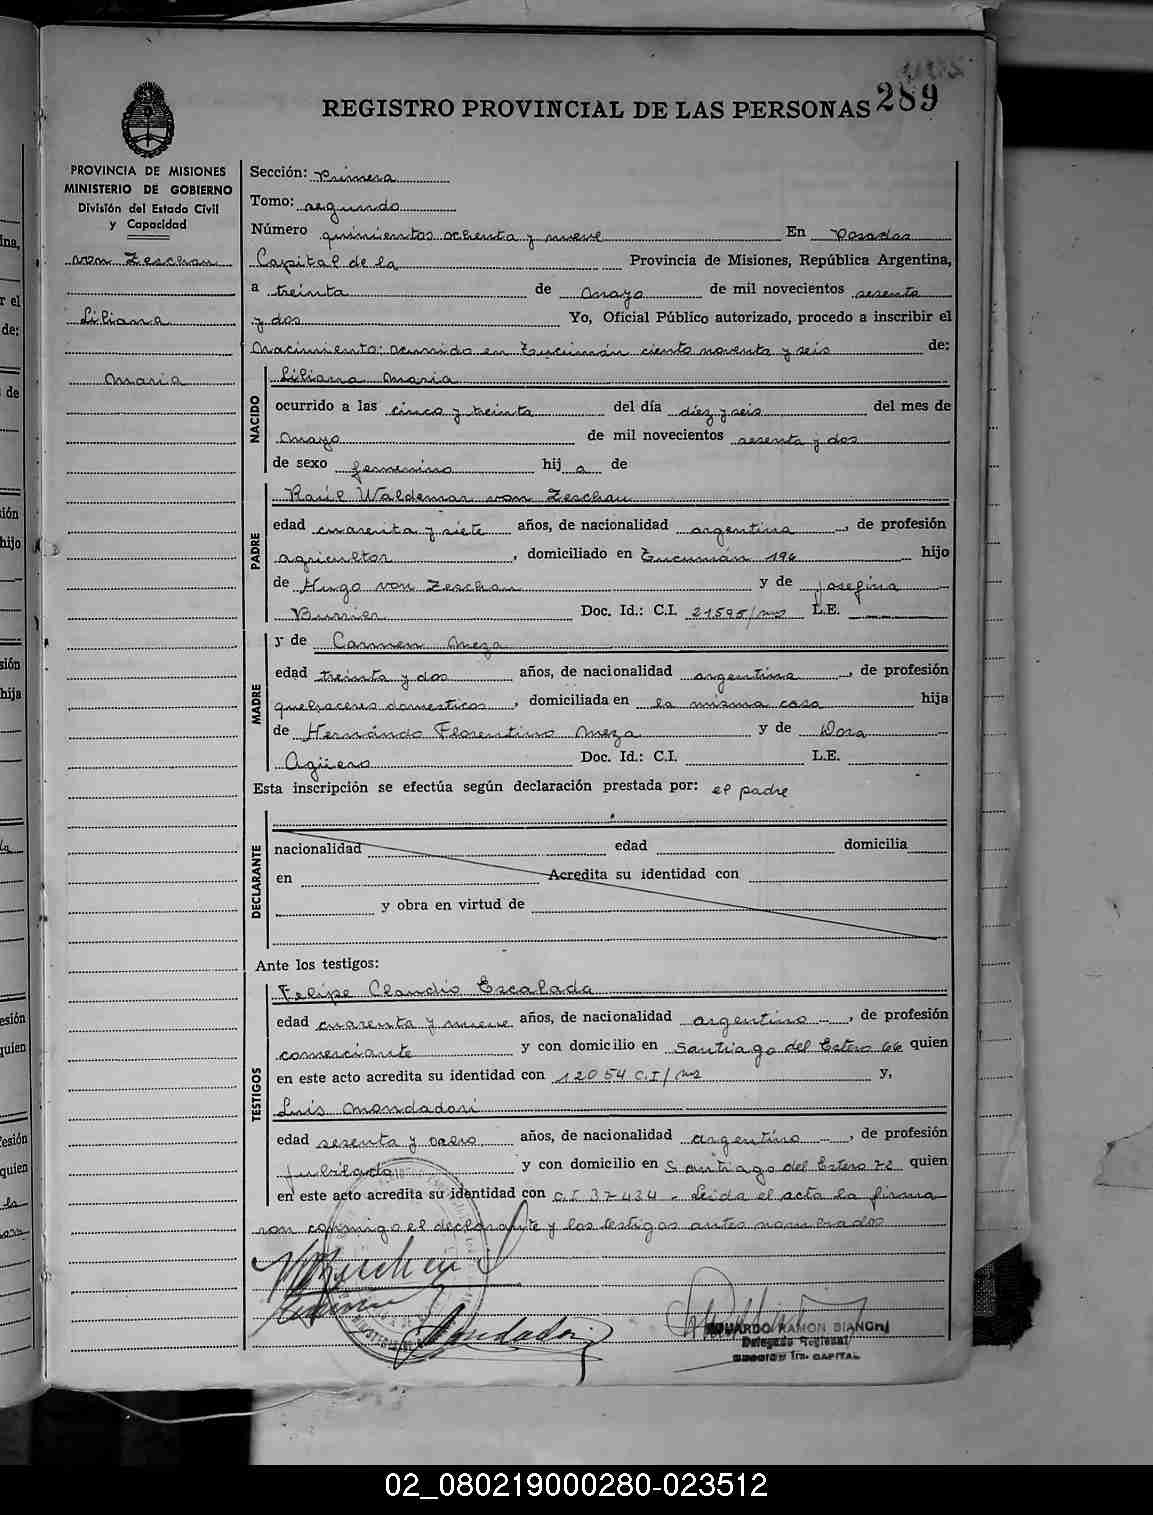 289
REGISTRO PROVINCIAL DE LAS PERSONAS
PROVINCIA DE MISIONES
MINISTERIO DE GOBIERNO
División del Estado Civil
y Capacidad
von Zeschau
Liliana
Maria
Sección: Primera
Tomo: segundo
Número quinientos ochenta y nueve En Posadas
Capital de la Provincia de Misiones, República Argentina,
a treinta de Mayo de mil novecientos sesenta
y dos Yo, Oficial Público autorizado, procedo a inscribir el
Nacimiento: ocurrido en Tucumán ciento noventa y seis de:
NACIDO
Liliana Maria
ocurrido a las cinco y treinta del día diez y seis del mes de
Mayo de mil novecientos sesenta y dos
de sexo femenino hij a de
PADRE
Raúl Waldemar von Zeschau
edad cuarenta y siete años, de nacionalidad argentina, de profesión
agricultor, domiciliado en Tucumán 196 hijo
de Hugo von Zeschau y de Josefina
Burrier Doc. Id.: C.I. 21595/mns L.E.
MADRE
y de Carmen Meza
edad treinta y dos años, de nacionalidad argentina, de profesión
quehaceres domesticos, domiciliada en la misma casa hija
de Hernándo Florentino Meza y de Dora
Agüero Doc. Id.: C.I. L.E.
Esta inscripción se efectúa según declaración prestada por: el padre
DECLARANTE
nacionalidad edad domicilia
en Acredita su identidad con
y obra en virtud de
Ante los testigos:
TESTIGOS
Felipe Claudio Escalada
edad cuarenta y nueve años, de nacionalidad argentino, de profesión
comerciante y con domicilio en Santiago del Estero 66 quien
en este acto acredita su identidad con 12054 C.I/ms y,
Luis Mondadori
edad sesenta y años, de nacionalidad argentino, de profesión
Jubilado y con domicilio en Santiago del Estero 72 quien
en este acto acredita su identidad con C.I. 37434 - Leida el acta la firma
ron conmigo el declarante y los testigos antes nombrados
Mondadori
EDUARDO RAMON BIANCHI
Delegado Regional
SECCION 1ra. CAPITAL
02_080219000280-023512